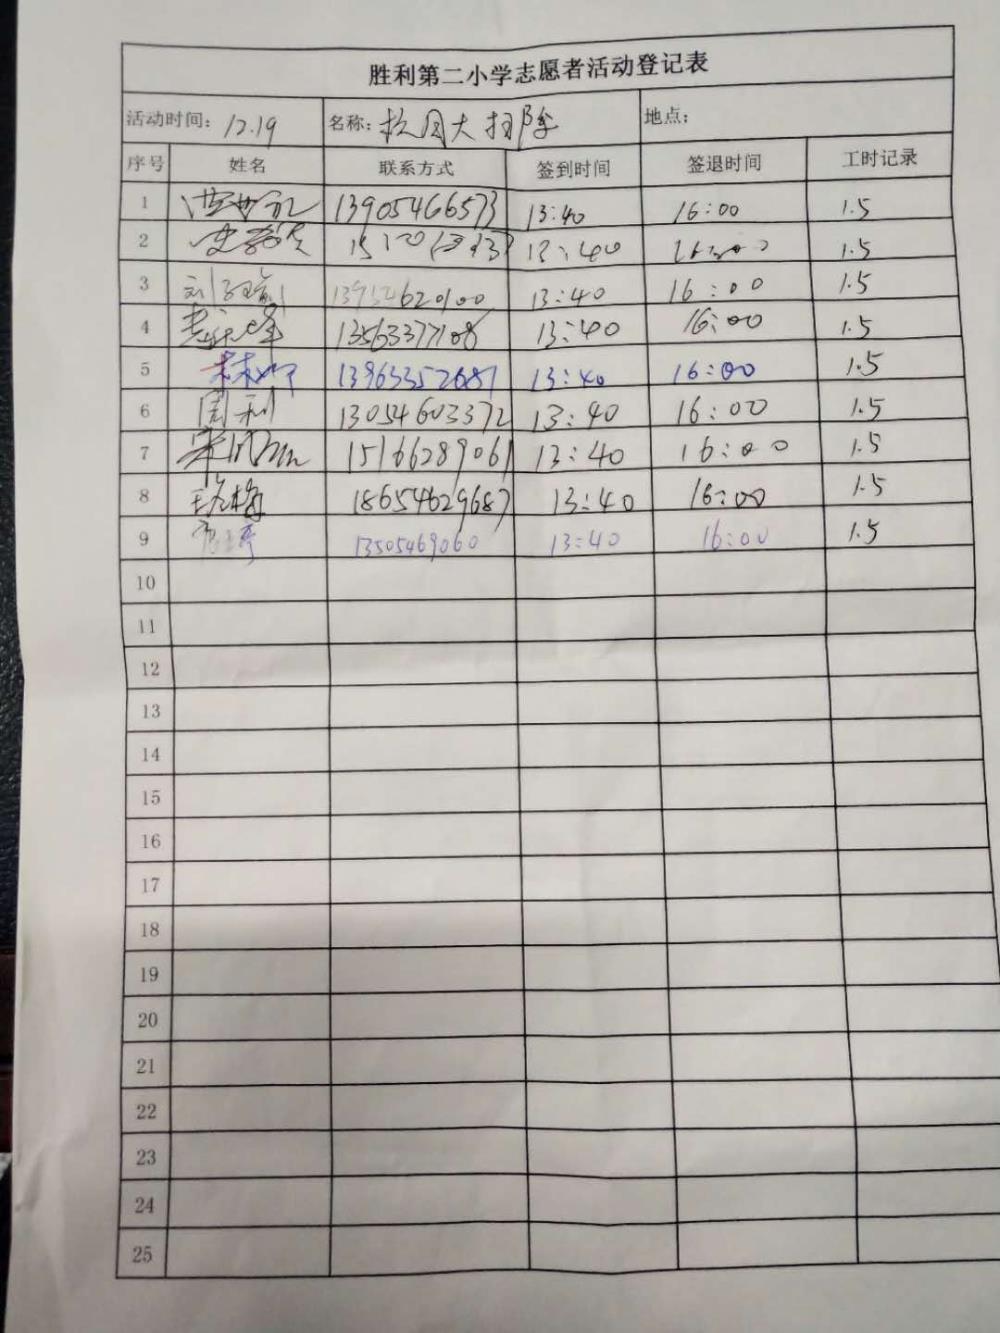 胜利第二小学志愿者活动登记表
活动时间: 12.19 名称: 校园大扫除 地点:
序号 姓名 联系方式 签到时间 签退时间 工时记录
1 13905466573 13:40 16:00 1.5
2 13:40 16:00 1.5
3 13:40 16:00 1.5
4 13563377108 13:40 16:00 1.5
5 13963352687 13:40 16:00 1.5
6 周利 13054603372 13:40 16:00 1.5
7 15166289061 13:40 16:00 1.5
8 18654629687 13:40 16:00 1.5
9 13505469060 13:40 16:00 1.5
10
11
12
13
14
15
16
17
18
19
20
21
22
23
24
25